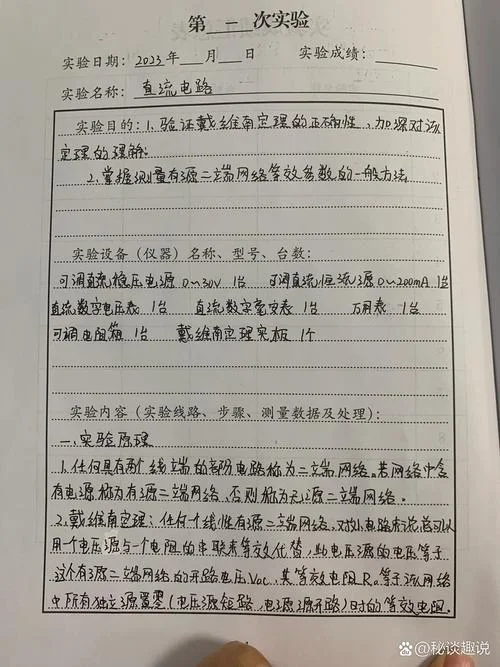 第 一 次实验
实验日期：2023年 月 日 实验成绩：
实验名称： 直流电路
实验目的：1、验证戴维南定理的正确性，加深对该
定理的理解。
2、掌握测量有源二端网络等效参数的一般方法
实验设备（仪器）名称、型号、台数：
可调直流稳压电源 0～30V 1台 可调直流恒流源 0～200mA 1台
直流数字电压表 1台 直流数字毫安表 1台 万用表 1台
可调电阻箱 1台 戴维南定理实板 1个
实验内容（实验线路、步骤、测量数据及处理）：
一、实验原理
1、任何具有两个线端的部份电路称为二端网络。若网络中含
有电源称为有源二端网络，否则称为无源二端网络。
2、戴维南定理：任何一个线性有源二端网络，对外电路来说总可以
用一个电压源与一个电阻的串联来等效代替，此电压源的电压等于
这个有源二端网络的开路电压Voc，其等效电阻R。等于该网络
中所有独立源置零（电压源短路，电源源开路）时的等效电阻。
@秘谈趣说